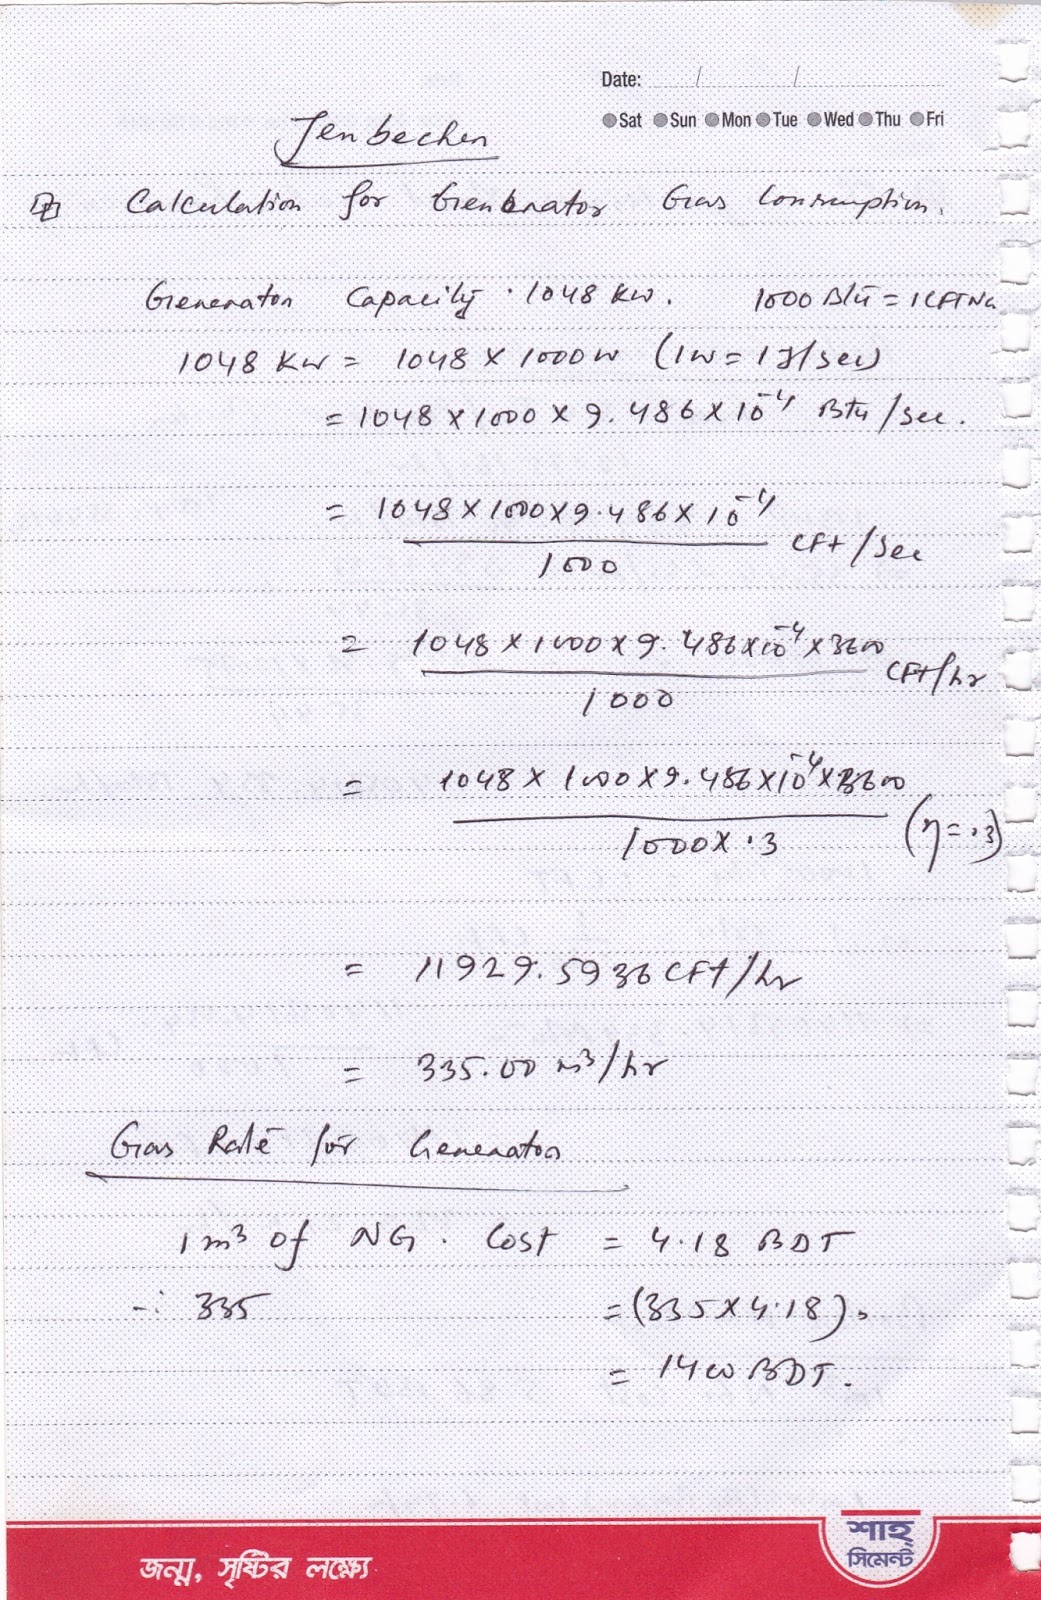 Date: / /
Sat Sun Mon Tue Wed Thu Fri
Jenbecher
Calculation for Generator Gas Consumption.
Generator Capacity · 1048 KW. 1000 Btu = 1 CFT NG
1048 KW = 1048 × 1000 W (1W = 1 J/sec)
= 1048 × 1000 × 9.486 × 10⁻⁴ Btu/sec.
= 1048 × 1000 × 9.486 × 10⁻⁴
1000 CFt/sec
= 1048 × 1000 × 9.486 × 10⁻⁴ × 3600
1000 CFt/hr
= 1048 × 1000 × 9.486 × 10⁻⁴ × 3600
1000 × .3 (η = .3)
= 11929.5936 CFt/hr
= 335.00 m³/hr
Gas Rate for Generator
1 m³ of NG. Cost = 4.18 BDT
∴ 335 = (335 × 4.18) "
= 1400 BDT.
শাহ্
সিমেন্ট
জন্ম, সৃষ্টির লক্ষ্যে